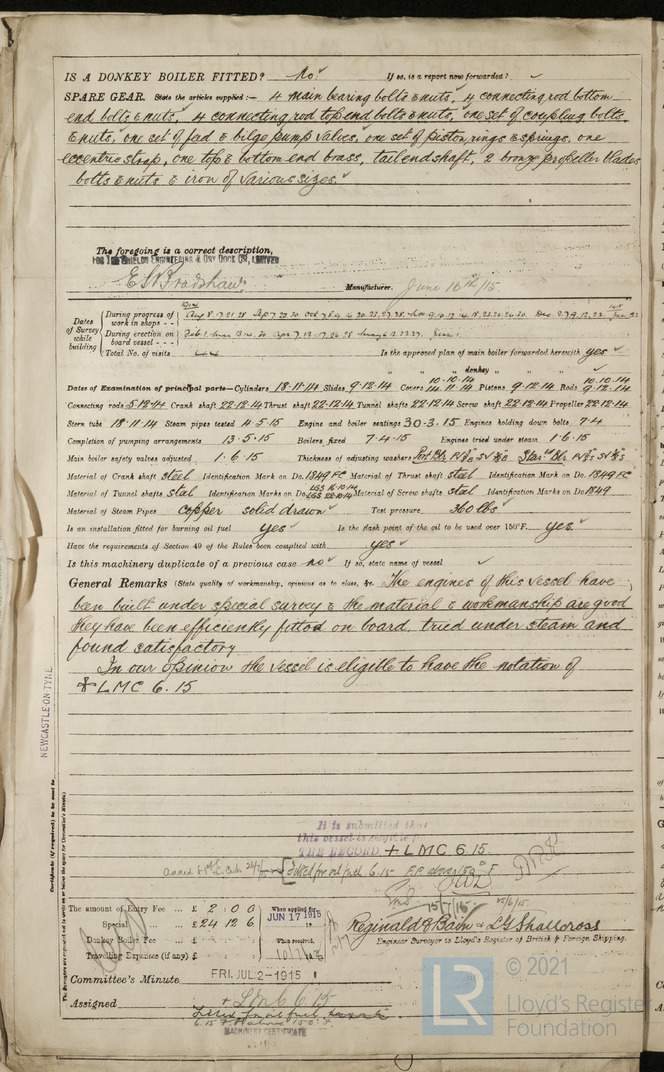 IS A DONKEY BOILER FITTED? No ✓ If so, is a report now forwarded? ✓
SPARE GEAR. State the articles supplied:— 4 main bearing bolts & nuts, 4 connecting rod bottom
end bolts & nuts, 4 connecting rod top end bolts & nuts, one set of coupling bolts
& nuts, one set of feed & bilge pump valves, one set of piston rings & springs, one
eccentric strap, one top & bottom end brass, tail end shaft, 2 bronze propeller blades
bolts & nuts & iron of various sizes. ✓
The foregoing is a correct description,
ENGINEERING & DRY DOCK CO., LIMITED
E. Bradshaw Manufacturer. June 16th/15
Dates of Survey while building
During progress of work in shops - -
During erection on board vessel - - -
Total No. of visits 44 Is the approved plan of main boiler forwarded herewith yes ✓
" " " donkey " " "
Dates of Examination of principal parts—Cylinders 18·11·14 Slides 9·12·14 Covers 10·10·14 14·11·14 Pistons 9·12·14 Rods 10·10·14 9·12·14
Connecting rods 5·12·14 Crank shaft 22·12·14 Thrust shaft 22·12·14 Tunnel shafts 22·12·14 Screw shaft 22·12·14 Propeller 22·12·14
Stern tube 18·11·14 Steam pipes tested 4·5·15 Engine and boiler seatings 30·3·15 Engines holding down bolts 7·4
Completion of pumping arrangements 13·5·15 Boilers fixed 7·4·15 Engines tried under steam 1·6·15
Main boiler safety valves adjusted 1·6·15 Thickness of adjusting washers
Material of Crank shaft steel Identification Mark on Do. 1849 FC Material of Thrust shaft steel Identification Mark on Do. 1849 FC
Material of Tunnel shafts steel Identification Marks on Do. Material of Screw shafts steel Identification Marks on Do. 1849
Material of Steam Pipes copper solid drawn ✓ Test pressure 360 lbs ✓
Is an installation fitted for burning oil fuel yes ✓ Is the flash point of the oil to be used over 150°F. yes.
Have the requirements of Section 49 of the Rules been complied with yes ✓
Is this machinery duplicate of a previous case no ✓ If so, state name of vessel ✓
General Remarks (State quality of workmanship, opinions as to class, &c. The engines of this vessel have
been built under special survey & the material & workmanship are good
they have been efficiently fitted on board, tried under steam and
found satisfactory
In our opinion the vessel is eligible to have the notation of
+ LMC 6.15
NEWCASTLE-ON-TYNE
Certificate (if required) to be sent to
It is submitted that
this vessel is eligible for
THE RECORD + LMC 6.15
fitted for oil fuel 6.15 F.P. above 150° F
15/7/15 25/6/15
The amount of Entry Fee ... £ 2 : 0 : 0 When applied for,
Special ... £ 24 12 6 JUN 17 1915
Donkey Boiler Fee ... £ When received,
Travelling Expenses (if any) £
Reginald D Bain & L G Shallcross
Engineer Surveyor to Lloyd's Register of British & Foreign Shipping.
Committee's Minute FRI. JUL 2-1915
Assigned + LMC 6.15
Fitted for oil fuel
6.15 F.P. above 150° F.
MACHINERY CERTIFICATE
LR © 2021
Lloyd's Register
Foundation